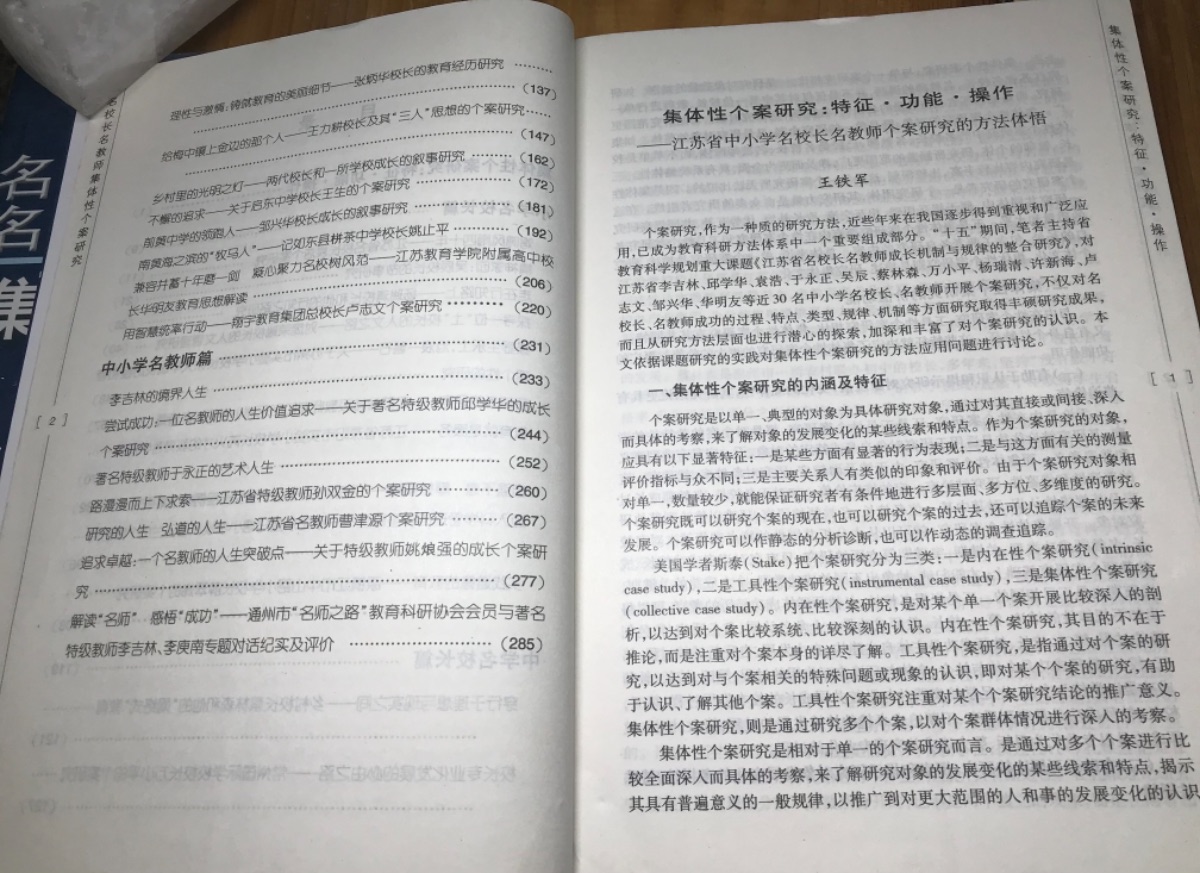 名
名
集
名校长名教师集体性个案研究
[ 2 ]
理性与激情:铸就教育的美丽细节——张炳华校长的教育经历研究 ………
……………………………………………………(137)
给梅中镶上金边的那个人——王力耕校长及其“三人”思想的个案研究……
……………………………………………………(147)
乡村里的光明之灯——两代校长和一所学校成长的叙事研究 ………(162)
不懈的追求——关于启东中学校长王生的个案研究 ……………(172)
前黄中学的领跑人——邹兴华校长成长的叙事研究 ……………(181)
南黄海之滨的“牧马人”——记如东县栟茶中学校长姚止平 …………(192)
兼容并蓄十年磨一剑 凝心聚力名校树风范——江苏教育学院附属高中校
长华明友教育思想解读 ……………………………………(206)
用智慧统率行动——翔宇教育集团总校长卢志文个案研究 …………(220)
中小学名教师篇 ……………………………………(231)
李吉林的境界人生 ……………………………………(233)
尝试成功:一位名教师的人生价值追求——关于著名特级教师邱学华的成长
个案研究 ……………………………………………(244)
著名特级教师于永正的艺术人生 ……………………………(252)
路漫漫而上下求索——江苏省特级教师孙双金的个案研究 …………(260)
研究的人生 弘道的人生——江苏省名教师曹津源个案研究 ………(267)
追求卓越:一个名教师的人生突破点——关于特级教师姚烺强的成长个案研
究 ……………………………………………………(277)
解读“名师” 感悟“成功”——通州市“名师之路”教育科研协会会员与著名
特级教师李吉林、李庾南专题对话纪实及评价 …………………(285)
集体性个案研究:特征·功能·操作
——江苏省中小学名校长名教师个案研究的方法体悟
王铁军
个案研究,作为一种质的研究方法,近些年来在我国逐步得到重视和广泛应
用,已成为教育科研方法体系中一个重要组成部分。“十五”期间,笔者主持省
教育科学规划重大课题《江苏省名校长名教师成长机制与规律的整合研究》,对
江苏省李吉林、邱学华、袁浩、于永正、吴辰、蔡林森、万小平、杨瑞清、许新海、卢
志文、邹兴华、华明友等近 30 名中小学名校长、名教师开展个案研究,不仅对名
校长、名教师成功的过程、特点、类型、规律、机制等方面研究取得丰硕研究成果,
而且从研究方法层面也进行潜心的探索,加深和丰富了对个案研究的认识。本
文依据课题研究的实践对集体性个案研究的方法应用问题进行讨论。
一、集体性个案研究的内涵及特征
个案研究是以单一、典型的对象为具体研究对象,通过对其直接或间接、深入
而具体的考察,来了解对象的发展变化的某些线索和特点。作为个案研究的对象,
应具有以下显著特征:一是某些方面有显著的行为表现;二是与这方面有关的测量
评价指标与众不同;三是主要关系人有类似的印象和评价。由于个案研究对象相
对单一,数量较少,就能保证研究者有条件地进行多层面、多方位、多维度的研究。
个案研究既可以研究个案的现在,也可以研究个案的过去,还可以追踪个案的未来
发展。个案研究可以作静态的分析诊断,也可以作动态的调查追踪。
美国学者斯泰(Stake)把个案研究分为三类:一是内在性个案研究(intrinsic
case study),二是工具性个案研究(instrumental case study),三是集体性个案研究
(collective case study)。内在性个案研究,是对某个单一个案开展比较深入的剖
析,以达到对个案比较系统、比较深刻的认识。内在性个案研究,其目的不在于
推论,而是注重对个案本身的详尽了解。工具性个案研究,是指通过对个案的研
究,以达到对与个案相关的特殊问题或现象的认识,即对某个个案的研究,有助
于认识、了解其他个案。工具性个案研究注重对某个个案研究结论的推广意义。
集体性个案研究,则是通过研究多个个案,以对个案群体情况进行深入的考察。
集体性个案研究是相对于单一的个案研究而言。是通过对多个个案进行比
较全面深入而具体的考察,来了解研究对象的发展变化的某些线索和特点,揭示
其具有普遍意义的一般规律,以推广到对更大范围的人和事的发展变化的认识
集体性个案研究:特征·功能·操作
[ 1 ]